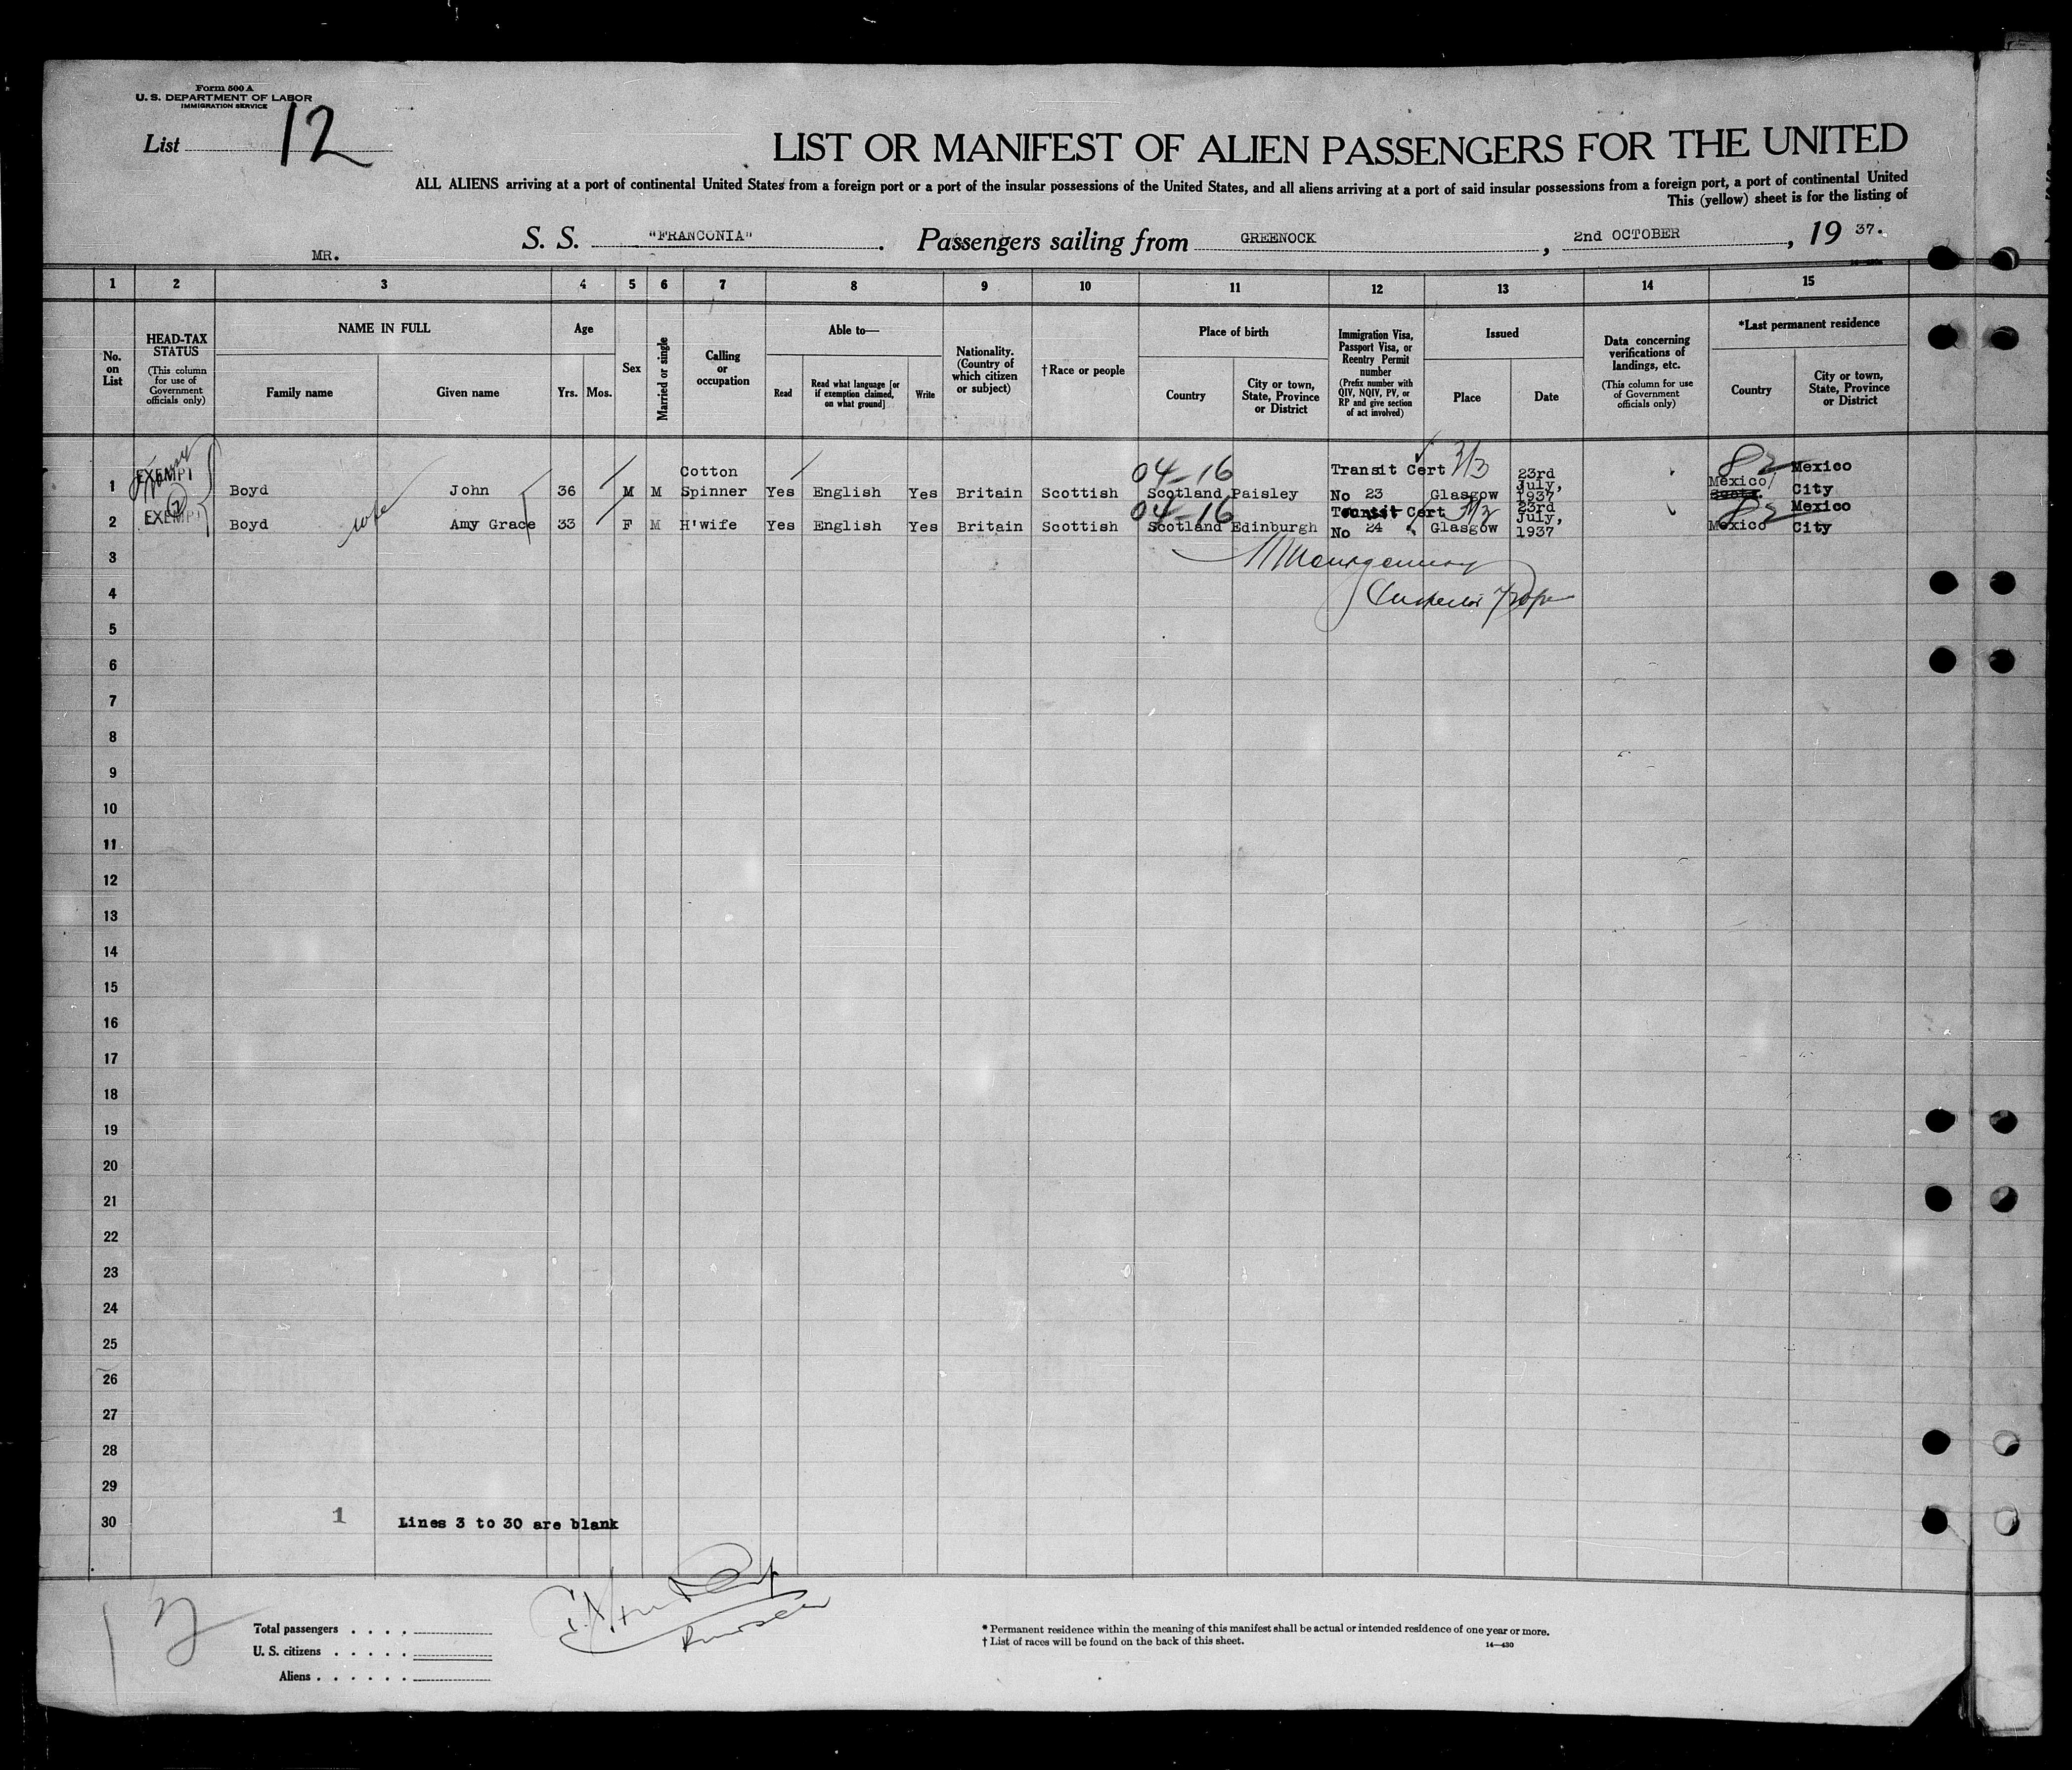 Form 500 A
U. S. DEPARTMENT OF LABOR
IMMIGRATION SERVICE
List 12
LIST OR MANIFEST OF ALIEN PASSENGERS FOR THE UNITED
ALL ALIENS arriving at a port of continental United States from a foreign port or a port of the insular possessions of the United States, and all aliens arriving at a port of said insular possessions from a foreign port, a port of continental United
This (yellow) sheet is for the listing of
S. S. "FRANCONIA". Passengers sailing from GREENOCK, 2nd OCTOBER, 19 37.
MR.
1 2 3 4 5 6 7 8 9 10 11 12 13 14 15
No. on List
HEAD-TAX STATUS
(This column for use of Government officials only)
NAME IN FULL
Family name
Given name
Age
Yrs.
Mos.
Sex
Married or single
Calling or occupation
Able to—
Read
Read what language [or if exemption claimed, on what ground]
Write
Nationality. (Country of which citizen or subject)
†Race or people
Place of birth
Country
City or town, State, Province or District
Immigration Visa, Passport Visa, or Reentry Permit number
(Prefix number with QIV, NQIV, PV, or RP and give section of act involved)
Issued
Place
Date
Data concerning verifications of landings, etc.
(This column for use of Government officials only)
*Last permanent residence
Country
City or town, State, Province or District
1 EXEMPT Boyd John 36 M M Cotton Spinner Yes English Yes Britain Scottish 04-16 Scotland Paisley Transit Cert No 23 3/3 Glasgow 23rd July, 1937 82 Mexico Mexico City
2 EXEMPT Boyd wife Amy Grace 33 F M H'wife Yes English Yes Britain Scottish 04-16 Scotland Edinburgh Transit Cert No 24 Glasgow 23rd July, 1937 82 Mexico Mexico City
3
4
5
6
7
8
9
10
11
12
13
14
15
16
17
18
19
20
21
22
23
24
25
26
27
28
29
30
1 Lines 3 to 30 are blank
Total passengers
U. S. citizens
Aliens
Purser
* Permanent residence within the meaning of this manifest shall be actual or intended residence of one year or more.
† List of races will be found on the back of this sheet.
14—430